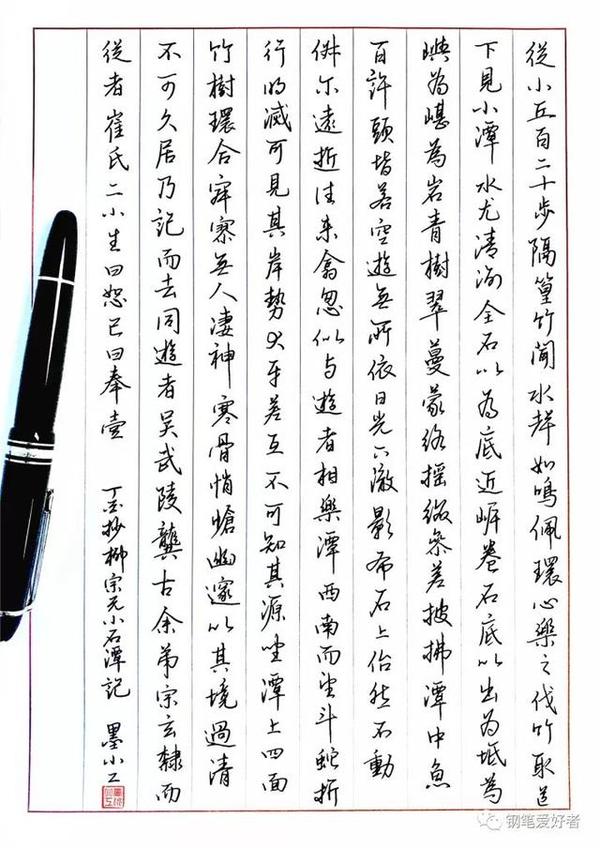 從小丘百二十步隔篁竹聞水聲如鳴佩環心樂之伐竹取道
下見小潭水尤清洌全石以為底近岸卷石底以出為坻為
嶼為嵁為岩青樹翠蔓蒙絡搖綴參差披拂潭中魚
百許頭皆若空遊無所依日光下澈影布石上佁然不動
俶尔遠逝往來翕忽似与遊者相樂潭西南而望斗蛇折
行明滅可見其岸勢犬牙差互不可知其源坐潭上四面
竹樹環合寂寥無人淒神寒骨悄愴幽邃以其境過清
不可久居乃記而去同遊者吳武陵龔古余弟宗玄隸而
從者崔氏二小生曰恕己曰奉壹
丁酉抄柳宗元小石潭記 墨小工
钢笔爱好者